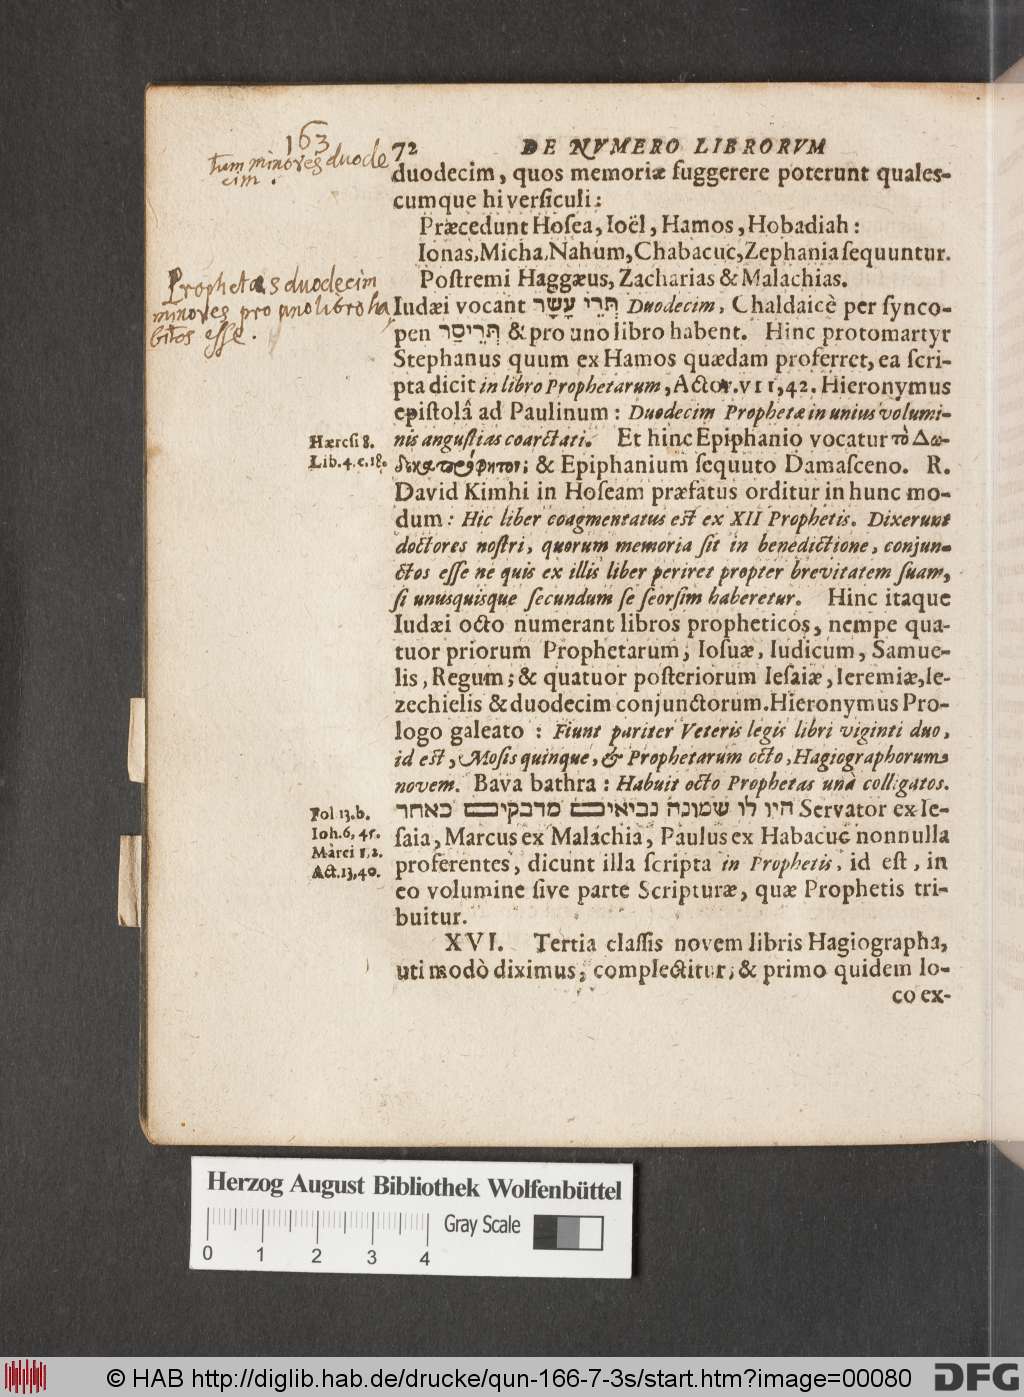 163
tum minores duode
cim.
72 DE NVMERO LIBRORVM
duodecim, quos memoriæ ſuggerere poterunt quales-
cumque hi verſiculi:
Præcedunt Hoſea, Ioël, Hamos, Hobadiah:
Ionas, Micha, Nahum, Chabacuc, Zephania ſequuntur.
Poſtremi Haggæus, Zacharias & Malachias.
Prophetas duodecim
minores pro uno libro ha
bitos eſſe.
Iudæi vocant תְּרֵי עָשָר Duodecim, Chaldaicè per ſynco-
pen תְּרֵיסַר & pro uno libro habent. Hinc protomartyr
Stephanus quum ex Hamos quædam proferret, ea ſcri-
pta dicit in libro Prophetarum, Actor. VII, 42. Hieronymus
epiſtolâ ad Paulinum: Duodecim Prophetæ in unius volumi-
Hæreſi 8.
nis anguſtias coarctati. Et hinc Epiphanio vocatur τὸ Δω-
Lib. 4. c. 18.
δεκαπρόφητον; & Epiphanium ſequuto Damaſceno. R.
David Kimhi in Hoſeam præfatus orditur in hunc mo-
dum: Hic liber coagmentatus eſt ex XII Prophetis. Dixerunt
doctores noſtri, quorum memoria ſit in benedictione, conjun-
ctos eſſe ne quis ex illis liber periret propter brevitatem ſuam,
ſi unusquisque ſecundum ſe ſeorſim haberetur. Hinc itaque
Iudæi octo numerant libros propheticos, nempe qua-
tuor priorum Prophetarum, Ioſuæ, Iudicum, Samue-
lis, Regum; & quatuor poſteriorum Ieſaiæ, Ieremiæ, Ie-
zechielis & duodecim conjunctorum. Hieronymus Pro-
logo galeato: Fiunt pariter Veteris legis libri viginti duo,
id eſt, Moſis quinque, & Prophetarum octo, Hagiographorum
novem. Bava bathra: Habuit octo Prophetas unà colligatos.
Fol 13. b.
היו לו שמונה נביאים מדבקים כאחד Servator ex Ie-
Ioh. 6, 45.
ſaia, Marcus ex Malachia, Paulus ex Habacuc nonnulla
Marci 1, 2.
proferentes, dicunt illa ſcripta in Prophetis, id eſt, in
Act. 13, 40.
eo volumine ſive parte Scripturæ, quæ Prophetis tri-
buitur.
XVI. Tertia claſſis novem libris Hagiographa,
uti modò diximus, complectitur; & primo quidem lo-
co ex-
Herzog August Bibliothek Wolfenbüttel
Gray Scale
0 1 2 3 4
© HAB http://diglib.hab.de/drucke/qun-166-7-3s/start.htm?image=00080
DFG